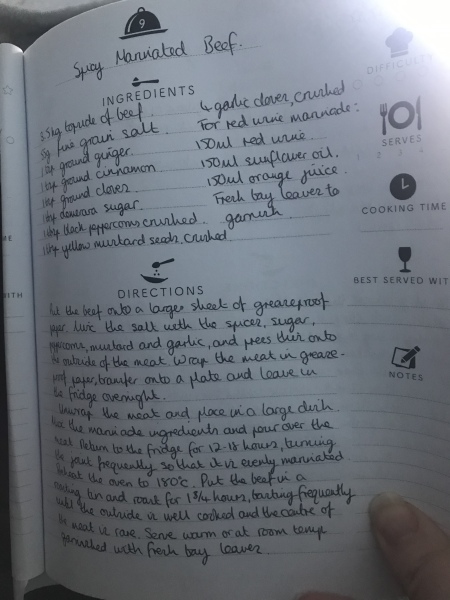 9
Spicy Marinated Beef.
INGREDIENTS
topside of beef.
5g fine grain salt.
1tsp ground ginger.
1tsp ground cinnamon
ground cloves.
1tbsp demerara sugar.
1tbsp black peppercorns crushed.
1tbsp yellow mustard seeds, crushed
4 garlic cloves, crushed
For red wine marinade:
150ml red wine.
150ml sunflower oil.
150ml orange juice.
Fresh bay leaves to
garnish.
DIRECTIONS
Put the beef onto a large sheet of greaseproof
paper. Mix the salt with the spices, sugar,
peppercorns, mustard and garlic, and press this onto
the outside of the meat. Wrap the meat in grease-
proof paper, transfer onto a plate and leave in
the fridge overnight.
Unwrap the meat and place in a large dish.
Mix the marinade ingredients and pour over the
meat. Return to the fridge for 12-18 hours, turning
the joint frequently so that it is evenly marinated.
Preheat the oven to 180°c. Put the beef in a
roasting tin and roast for 1 3/4 hours, basting frequently
until the outside is well cooked and the centre of
the meat is rare. Serve warm or at room temp
garnished with fresh bay leaves
DIFFICULTY
SERVES
COOKING TIME
BEST SERVED WIT
NOTES
ME
ITH